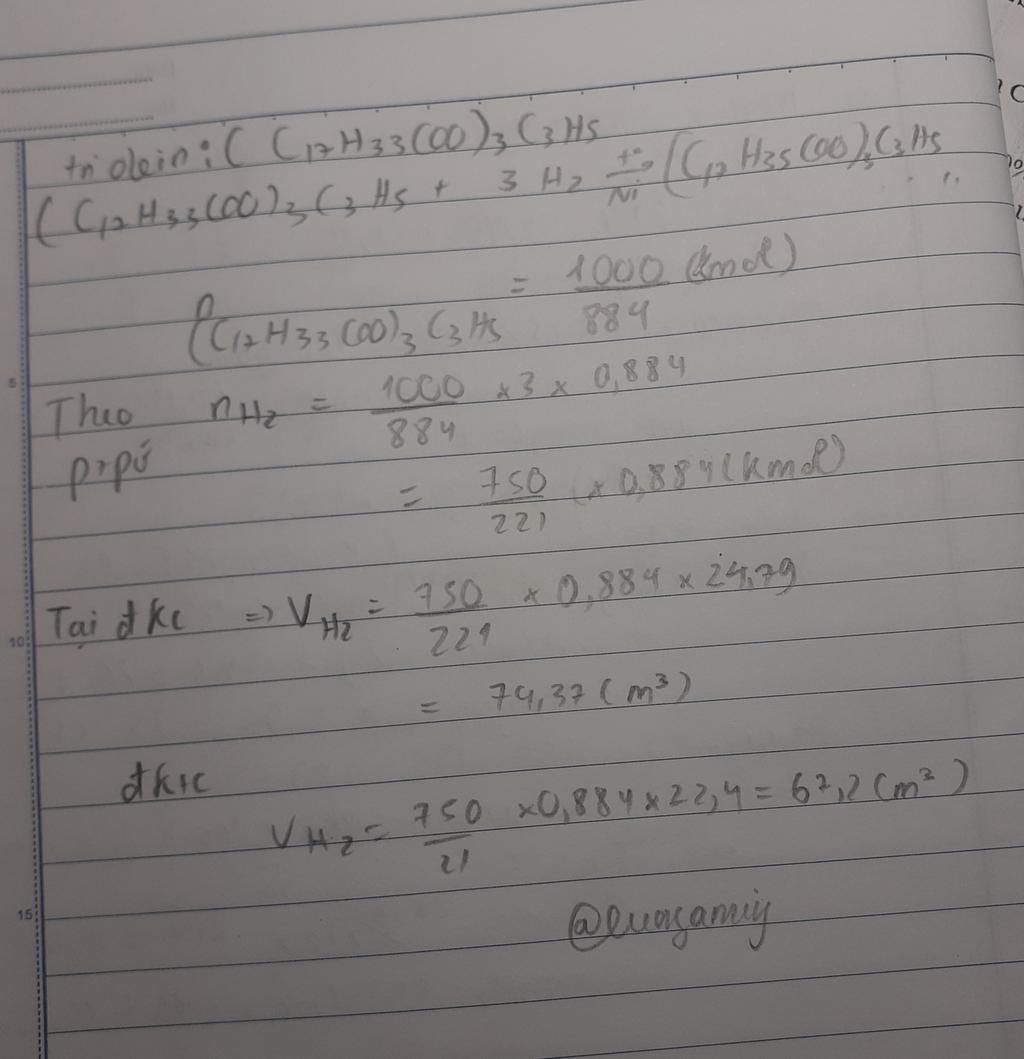 tri olein : ( C17H33COO)3C3H5
(C17H33COO)3C3H5 + 3 H2 t° Ni (C17H35COO)3C3H5
n (C17H33COO)3C3H5 = 1000/884 (kmol)
Theo ptpứ nH2 = 1000/884 × 3 × 0,884
= 750/221 × 0,884 (kmol)
Tại đkc => VH2 = 750/221 × 0,884 × 24,79
= 74,37 (m3)
đktc
VH2 = 750/21 × 0,884 × 22,4 = 67,2 (m3)
5
10
15